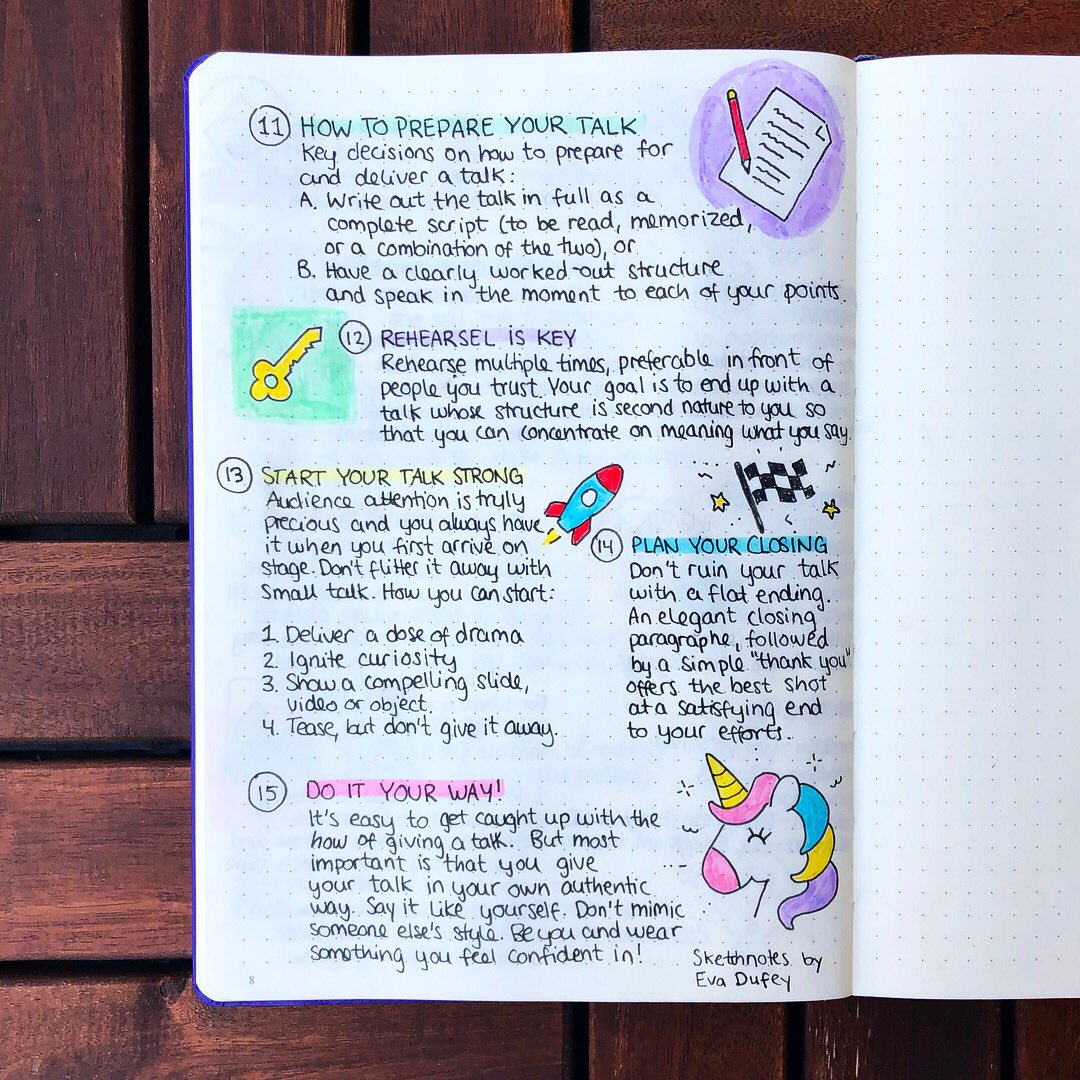 11 HOW TO PREPARE YOUR TALK
Key decisions on how to prepare for
and deliver a talk:
A. Write out the talk in full as a
complete script (to be read, memorized,
or a combination of the two), or
B. Have a clearly worked-out structure
and speak in the moment to each of your points.
12 REHEARSEL IS KEY
Rehearse multiple times, preferable in front of
people you trust. Your goal is to end up with a
talk whose structure is second nature to you so
that you can concentrate on meaning what you say.
13 START YOUR TALK STRONG
Audience attention is truly
precious and you always have
it when you first arrive on
stage. Don't flitter it away with
small talk. How you can start:
1. Deliver a dose of drama
2. Ignite curiosity
3. Show a compelling slide,
video or object.
4. Tease, but don't give it away.
14 PLAN YOUR CLOSING
Don't ruin your talk
with a flat ending.
An elegant closing
paragraphe, followed
by a simple "thank you"
offers the best shot
at a satisfying end
to your efforts.
15 DO IT YOUR WAY!
It's easy to get caught up with the
how of giving a talk. But most
important is that you give
your talk in your own authentic
way. Say it like yourself. Don't mimic
someone else's style. Be you and wear
something you feel confident in!
Sketchnotes by
Eva Dufey
8